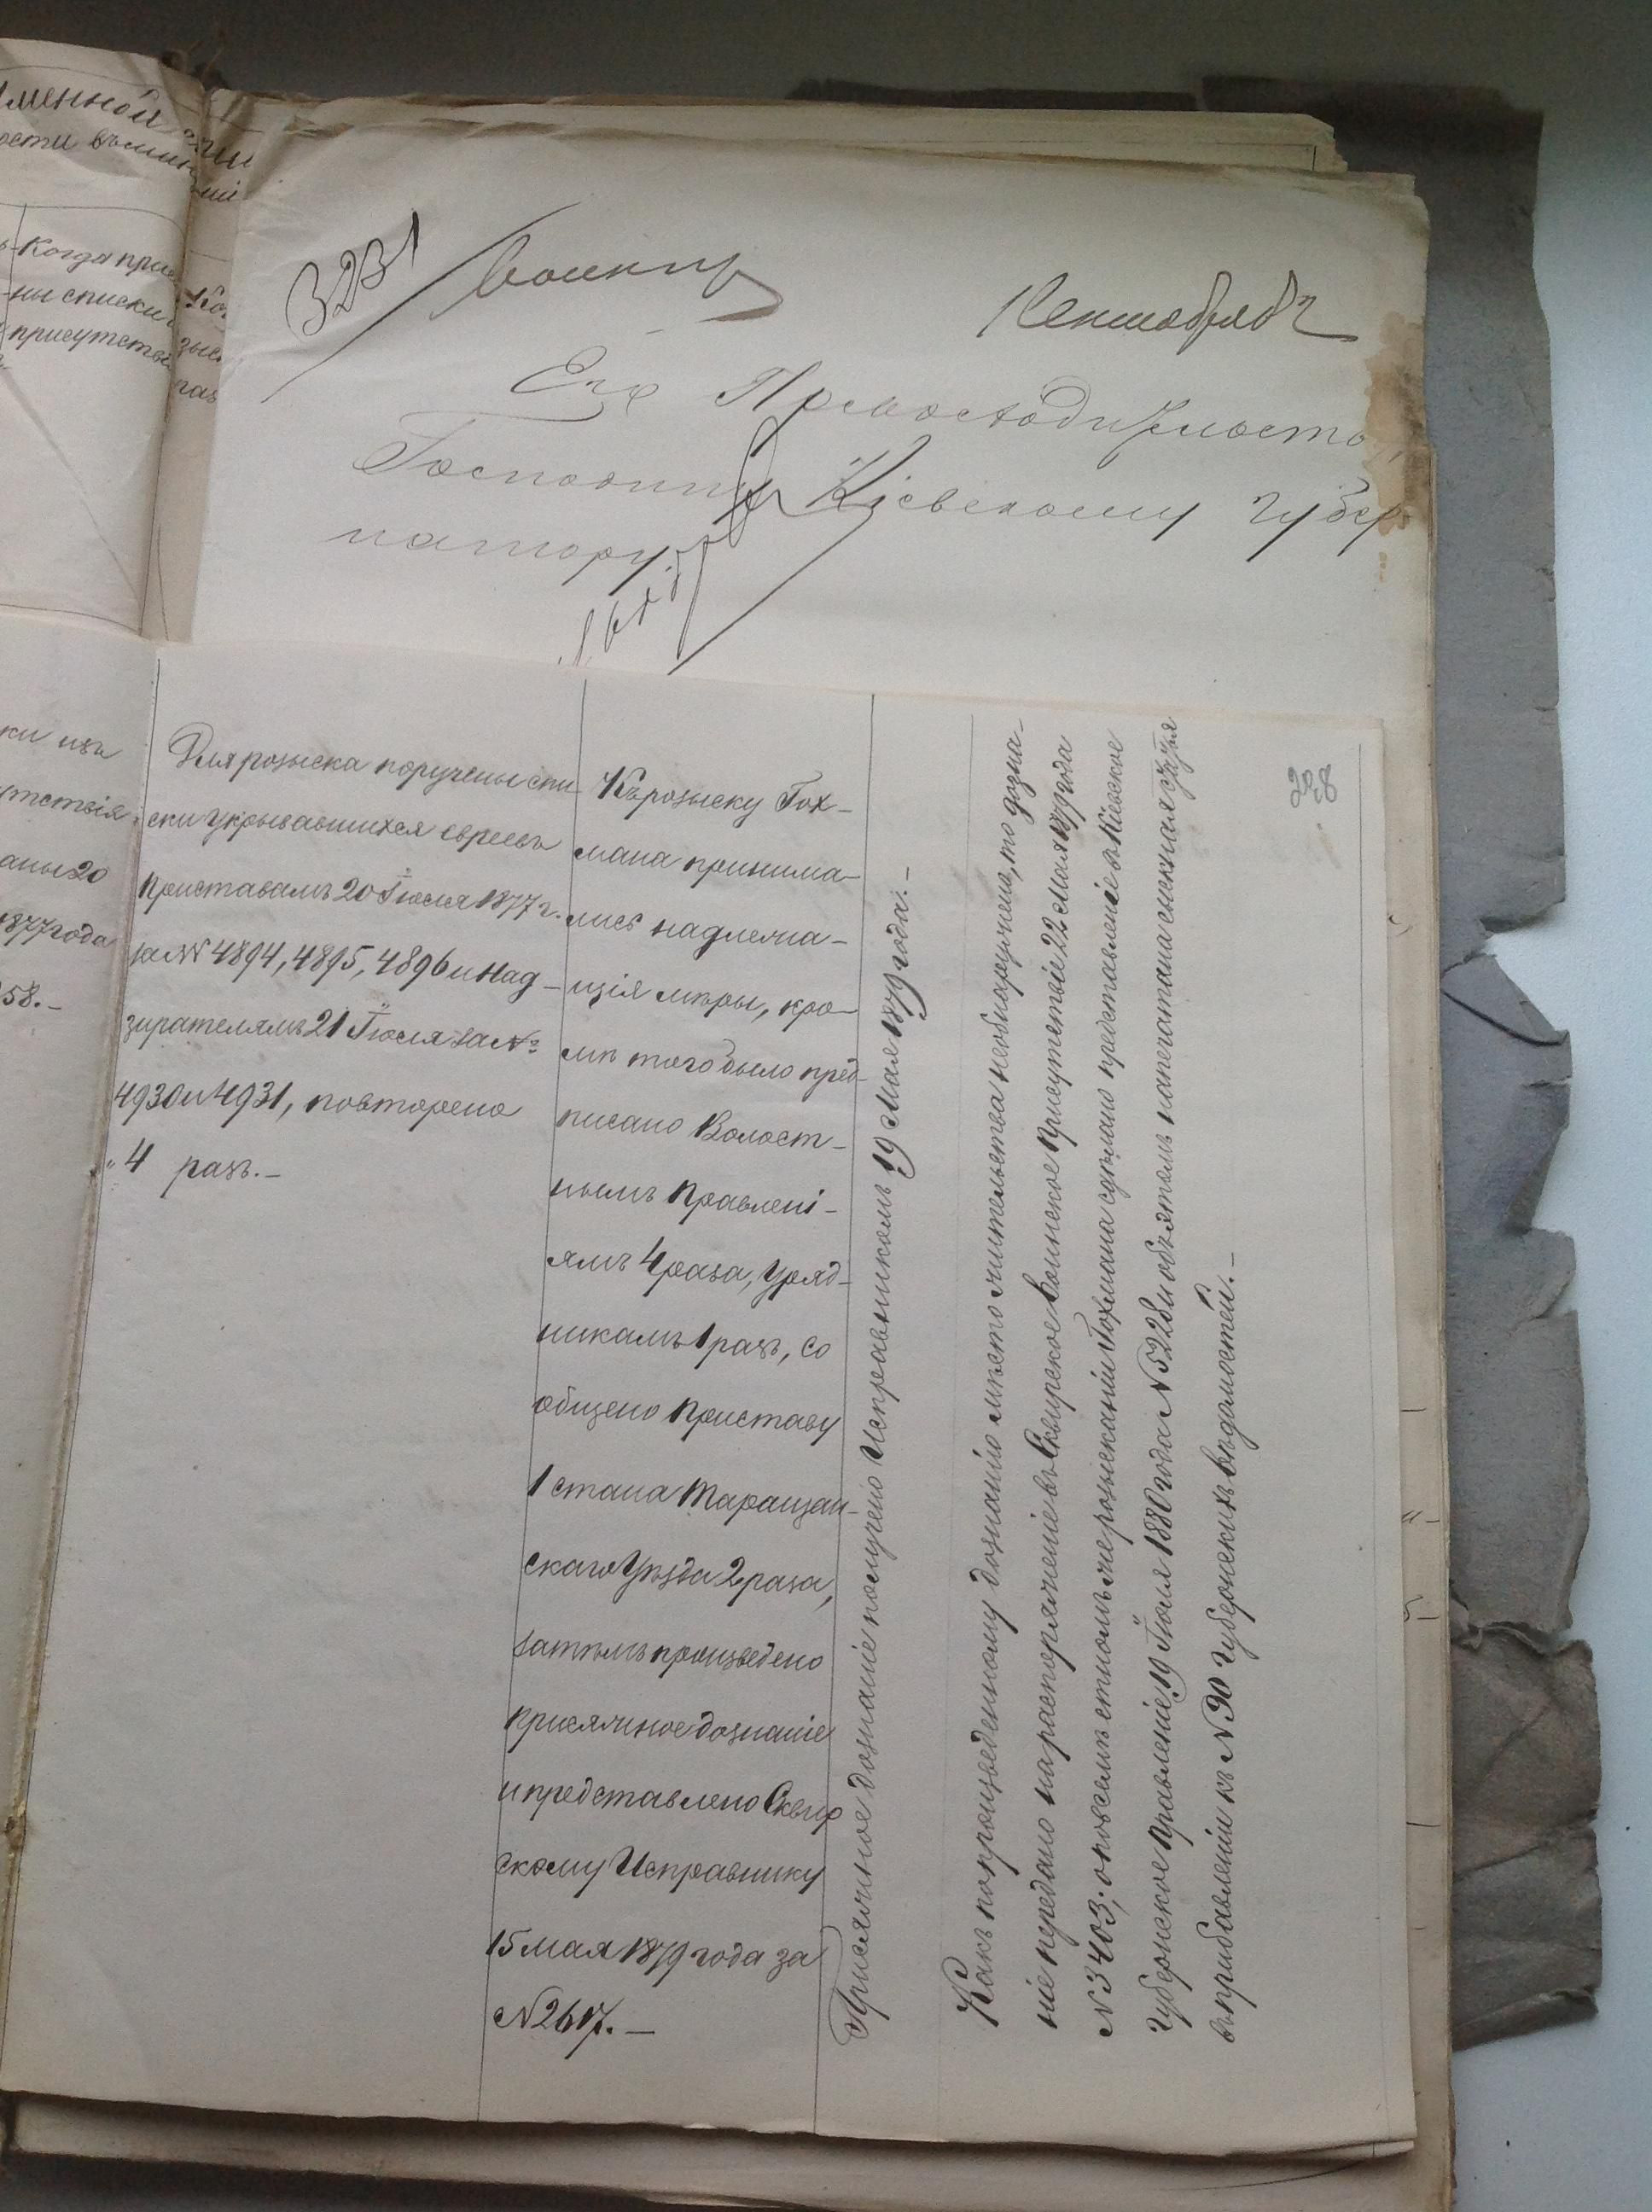 именной
Когда при
ны списки
присутств
3231
Воинск
Сентября
Его Превосходительству
Господину Кіевскому Губер
натору.
228
ки изъ
утствія
аны 20
1877 года
58.-
Для розыска поручены спи
ски укрывавшихся евреевъ
Приставамъ 20 Іюля 1877 г.
за №№ 4894, 4895, 4896 и Над-
зирателямъ 21 Іюля за №
4930 и 4931, повторено
4 разъ.-
Къ розыску Гох-
мана принима-
лись надлежа-
щія мѣры, кро-
мѣ того было пред-
писано Волост-
нымъ Правлені-
ямъ 4 раза, Уряд-
никамъ 1 разъ, со
общено Приставу
1 стана Таращан-
скаго Уѣзда 2 раза,
затѣмъ произведено
присяжное дознаніе
и представлено Сквир
скому Исправнику
15 мая 1879 года за
№ 2617.-
Присяжное дознаніе получено Исправникомъ 19 Мая 1879 года.-
Какъ по произведенному дознанію мѣсто жительства необнаружено, то дозна-
ніе передано на распоряженіе въ Сквирское Воинское Присутствіе 22 Мая 1879 года
№ 3403; о повсемѣстномъ же розысканіи Гохмана сдѣлано представленіе въ Кіевское
Губернское Правленіе 19 Іюля 1880 года № 5228 и объ этомъ напечатана сыскная статья
въ прибавленіи къ № 90 Губернскихъ вѣдомостей.-